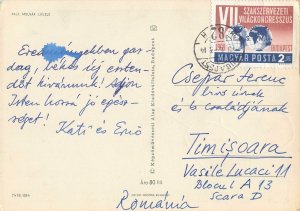 PÁLL MOLNÁR LÁSZLÓ
Eredményekben gaz-
dag, békés új eszten-
dőt kívánunk! Adjon
Isten hozzá jó egész-
séget!
Kati és Ernő
Ára 80 fill
VII. SZAKSZERVEZETI
VILÁGKONGRESSZUS
BUDAPEST
MAGYAR POSTA
Csepár Ferenc
úrnak
és b. családjának
Timișoara
Vasile Lucaci 11
Blocul A 13
Scara D
România